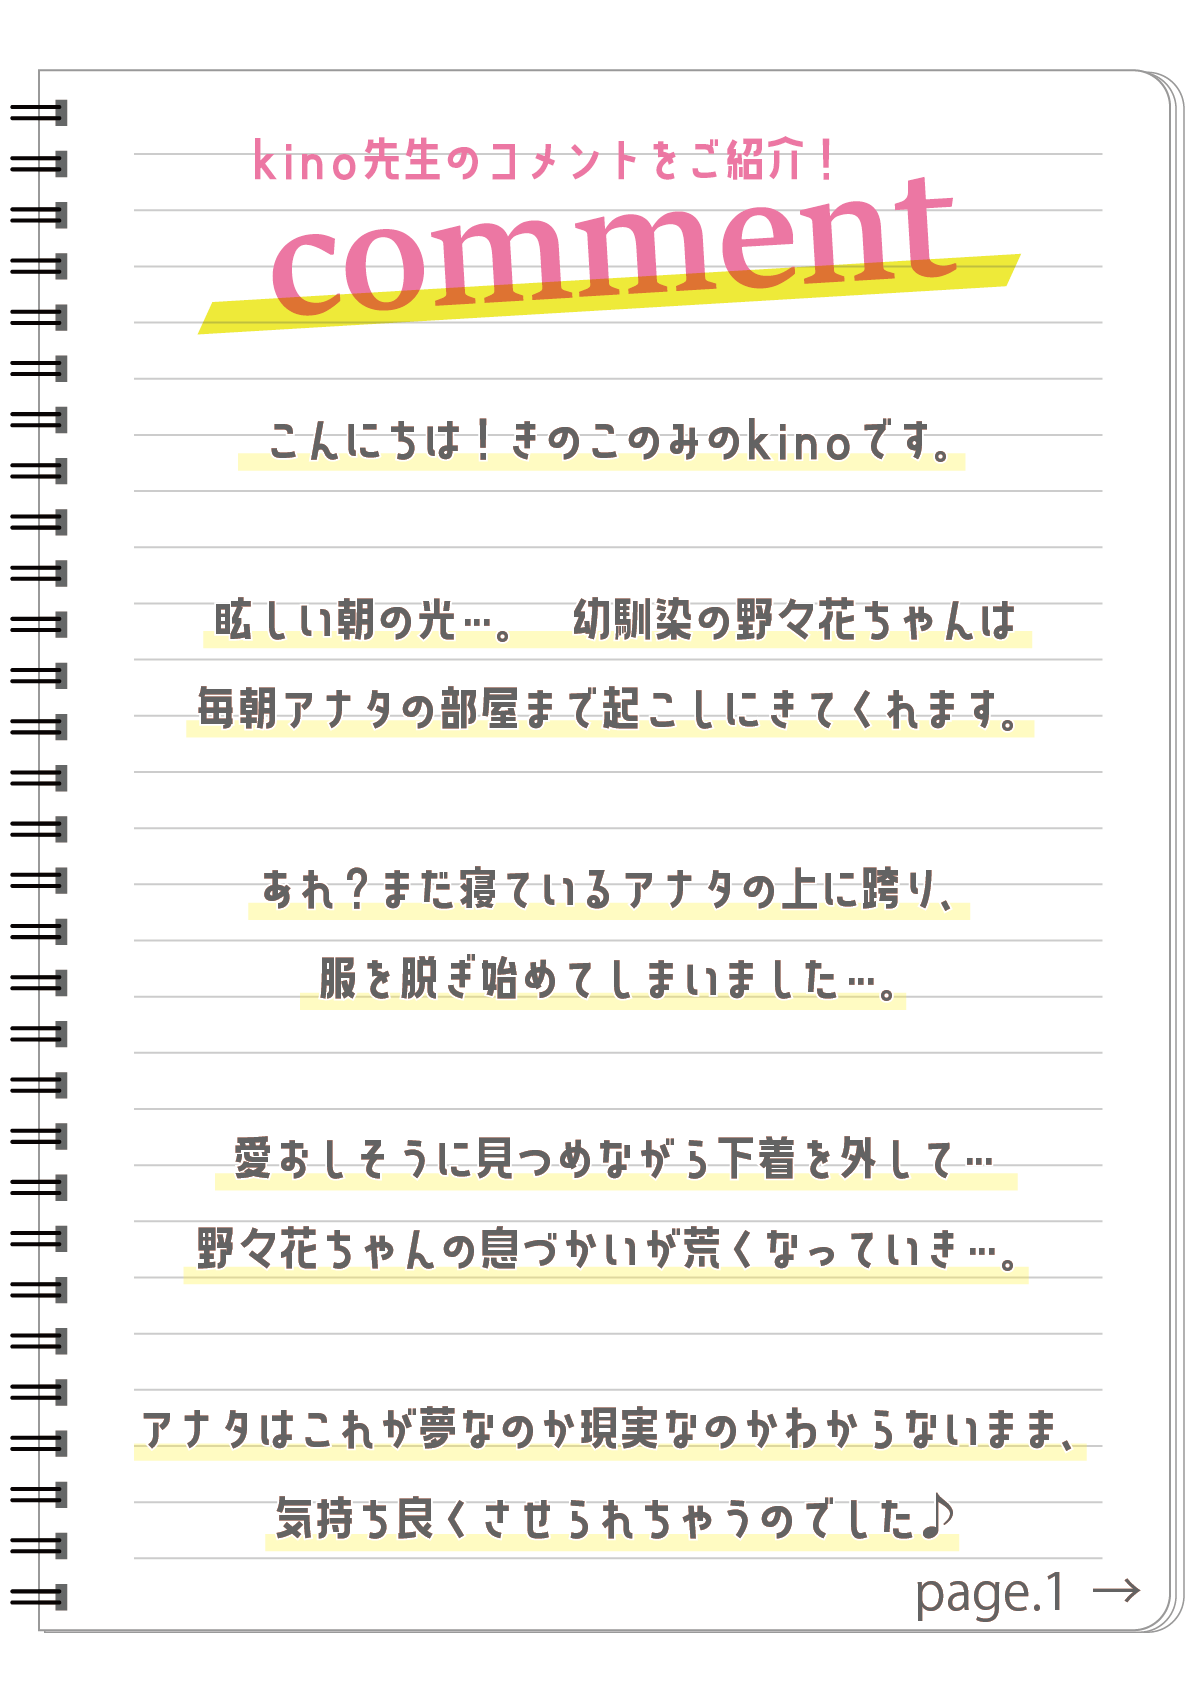 kino先生のコメントをご紹介！
comment
こんにちは！きのこのみのkinoです。
眩しい朝の光…。　幼馴染の野々花ちゃんは
毎朝アナタの部屋まで起こしにきてくれます。
あれ？まだ寝ているアナタの上に跨り、
服を脱ぎ始めてしまいました…。
愛おしそうに見つめながら下着を外して…
野々花ちゃんの息づかいが荒くなっていき…。
アナタはこれが夢なのか現実なのかわからないまま、
気持ち良くさせられちゃうのでした♪
page.1 →